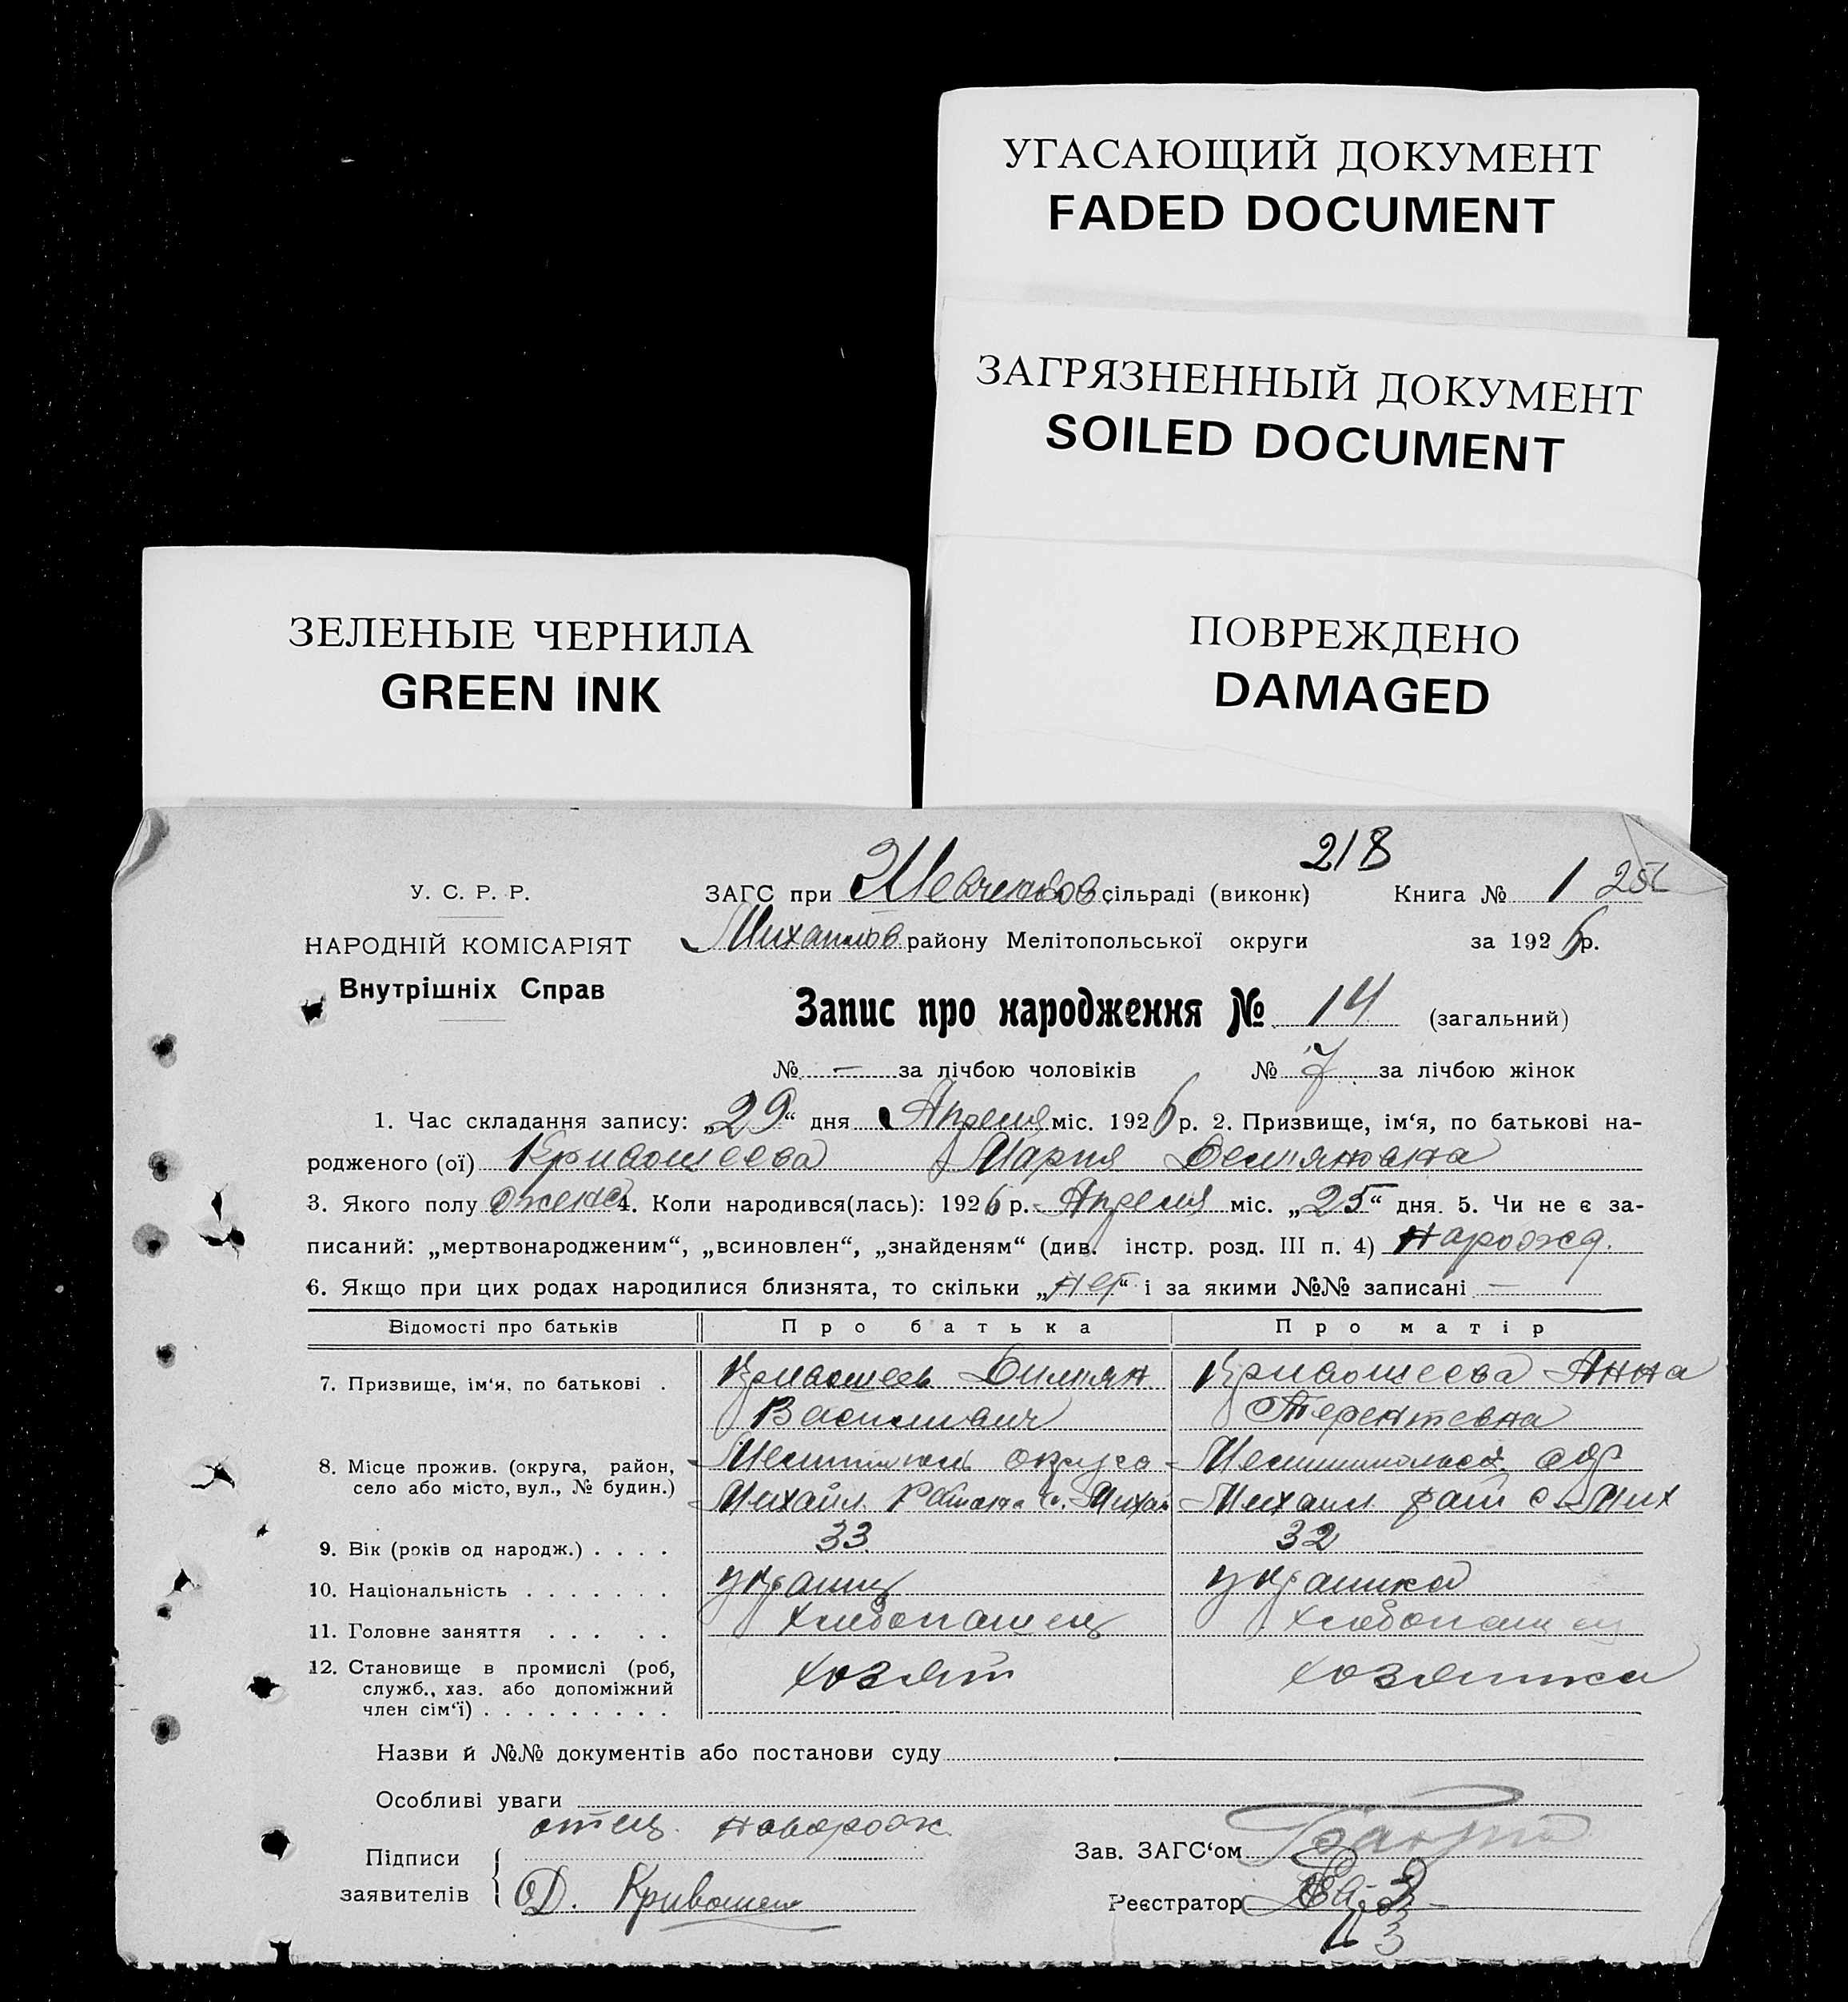 УГАСАЮЩИЙ ДОКУМЕНТ
FADED DOCUMENT
ЗАГРЯЗНЕННЫЙ ДОКУМЕНТ
SOILED DOCUMENT
ЗЕЛЕНЫЕ ЧЕРНИЛА
GREEN INK
ПОВРЕЖДЕНО
DAMAGED
218
У. С. Р. Р.
ЗАГС при Шевченков сільраді (виконк) Книга № 1 25
НАРОДНІЙ КОМІСАРІЯТ
Михайлов району Мелітопольської округи за 1926 р.
Внутрішніх Справ
Запис про народження № 14 (загальний)
№ — за лічбою чоловіків № 7 за лічбою жінок
1. Час складання запису: „29“ дня Апреля міс. 1926 р. 2. Призвище, ім‘я, по батькові на-
родженого (ої) Кривошеева Мария Демяновна
3. Якого полу жена 4. Коли народився(лась): 1926 р. Апреля міс. „25“ дня. 5. Чи не є за-
писаний: „мертвонародженим“, „всиновлен“, „знайденям“ (див. інстр. розд. III п. 4) Нарожд.
6. Якщо при цих родах народилися близнята, то скільки „нет“ і за якими №№ записані —
Відомості про батьків Про батька Про матір
7. Призвище, ім‘я, по батькові . Кривошеев Димян Кривошеева Анна
Василивич Терентевна
8. Місце прожив. (округа, район, село або місто, вул., № будин.) округа
Михайл Района с. Михай Михаил рай с. Мих
9. Вік (років од народж.) . . . . 33 32
10. Національність . . . . . . . украинц украинка
11. Головне заняття . . . . . хлебопашец хлебопашец
12. Становище в промислі (роб, служб., хаз. або допоміжний член сім‘ї) . . . . . . . . . хозяин хозяика
Назви й №№ документів або постанови суду
Особливі уваги
отец новорож.
Підписи заявителів Д. Кривошеев
Зав. ЗАГС‘ом
Реєстратор